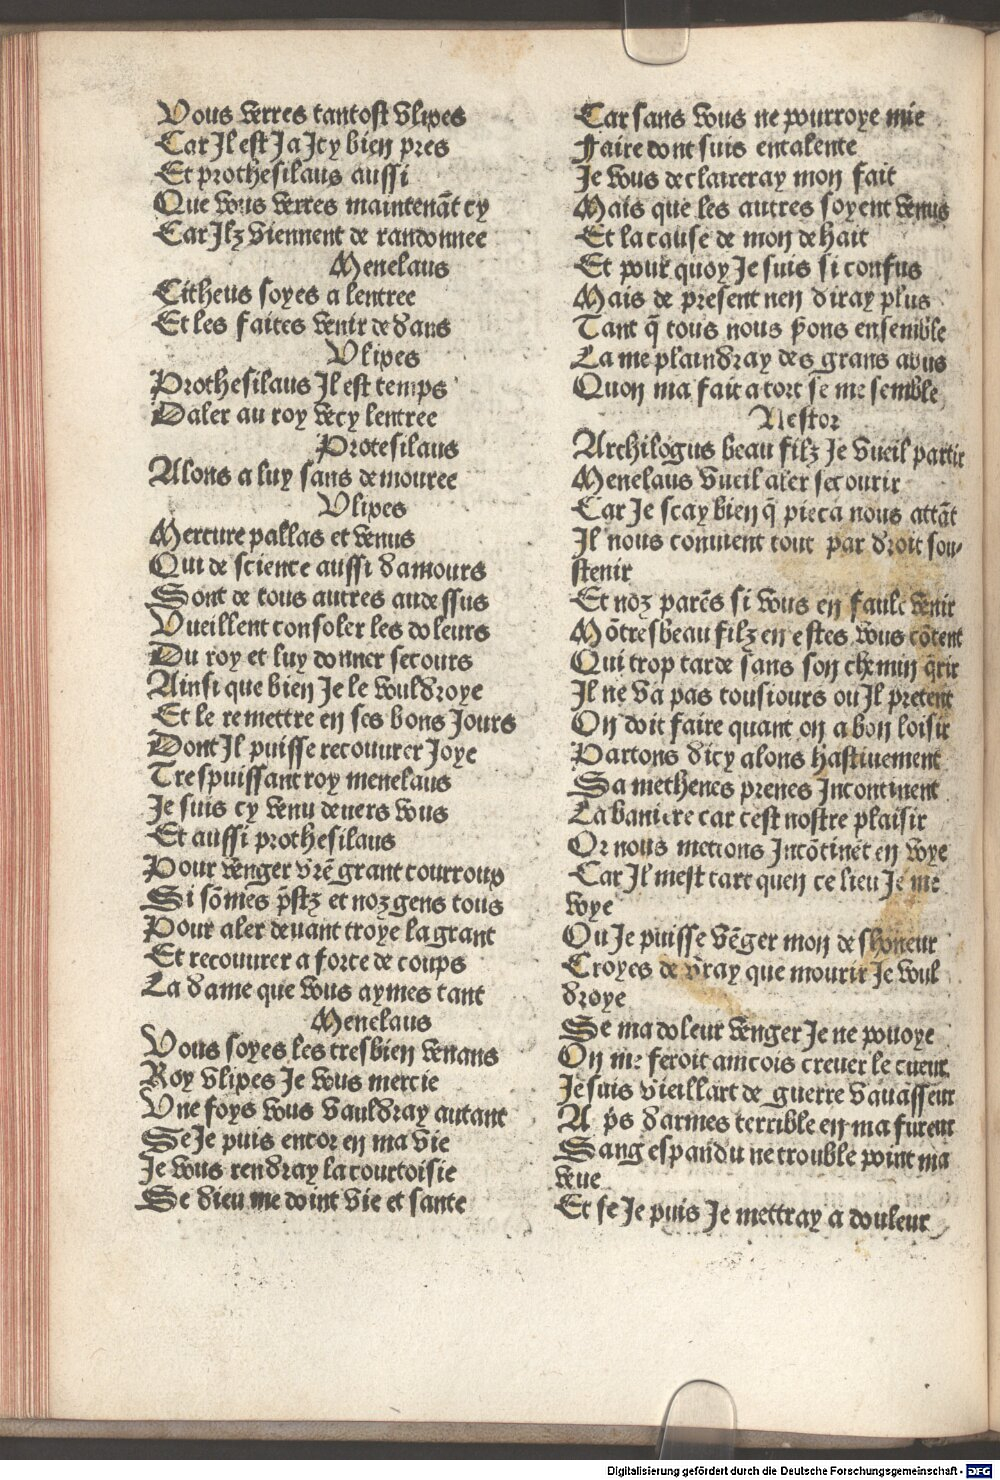 Vous verres tantost vlixes
Car Il est Ja Icy bien pres
Et prothesilaus aussi
Que vous verres maintenāt cy
Car Ilz viennent de randonnee
Menelaus
Citheus soyes a lentree
Et les faites venir dedans
Vlixes
Prothesilaus Il est temps
Daler au roy vecy lentree
Protesilaus
Alons a luy sans demouree
Vlixes
Mercure pallas et venus
Qui de science aussi damours
Sont de tous autres audessus
Vueillent consoler les doleurs
Du roy et luy donner secours
Ainsi que bien Je le vouldroye
Et le remettre en ses bons Jours
Dont Il puisse recouurer Joye
Trespuissant roy menelaus
Je suis cy venu deuers vous
Et aussi prothesilaus
Pour venger vr̄e grant courroux
Si sōmes p̄stz et noz gens tous
Pour aler deuant troye la grant
Et recouurer a force de coups
La dame que vous aymes tant
Menelaus
Vous soyes les tresbien venans
Roy vlixes Je vous mercie
Vne foys vous vauldray autant
Se Je puis encor en ma vie
Je vous rendray la courtoisie
Se dieu me doint vie et sante
Car sans vous ne pourroye mie
Faire dont suis entalente
Je vous declaireray mon fait
Mais que les autres soyent venus
Et la cause de mon dehait
Et pour quoy Je suis si confus
Mais de present nen diray plus
Tant q̄ tous nous s̄ons ensemble
La me plaindray des grans abus
Quon ma fait a tort se me semble
Nestor
Archilogus beau filz Je vueil partir
Menelaus vueil aler secourir
Car Je scay bien q̄ pieca nous attāt
Il nous conuient tout par droit sou-
stenir
Et noz parēs si vous en fault venir
Mō tresbeau filz en estes vous cōtent
Qui trop tarde sans son chemin q̄rir
Il ne va pas tousiours ou Il pretent
On doit faire quant on a bon loisir
Partons dicy alons hastiuement
Sa methenes prenes Incontinent
La baniere car cest nostre plaisir
Or nous mettons Incōtinēt en voye
Car Il mest tart quen ce lieu Je me
voye
Ou Je puisse vēger mon deshoneur
Croyes de vray que mourir Je voul
droye
Se ma doleur venger Je ne pouoye
On me feroit aincois creuer le cueur
Je suis vieillart de guerre vauasseur
A p̄s darmes terrible en ma fureur
Sang espandu ne trouble point ma
veue
Et se Je puis Je mettray a douleur
Digitalisierung gefördert durch die Deutsche Forschungsgemeinschaft - DFG